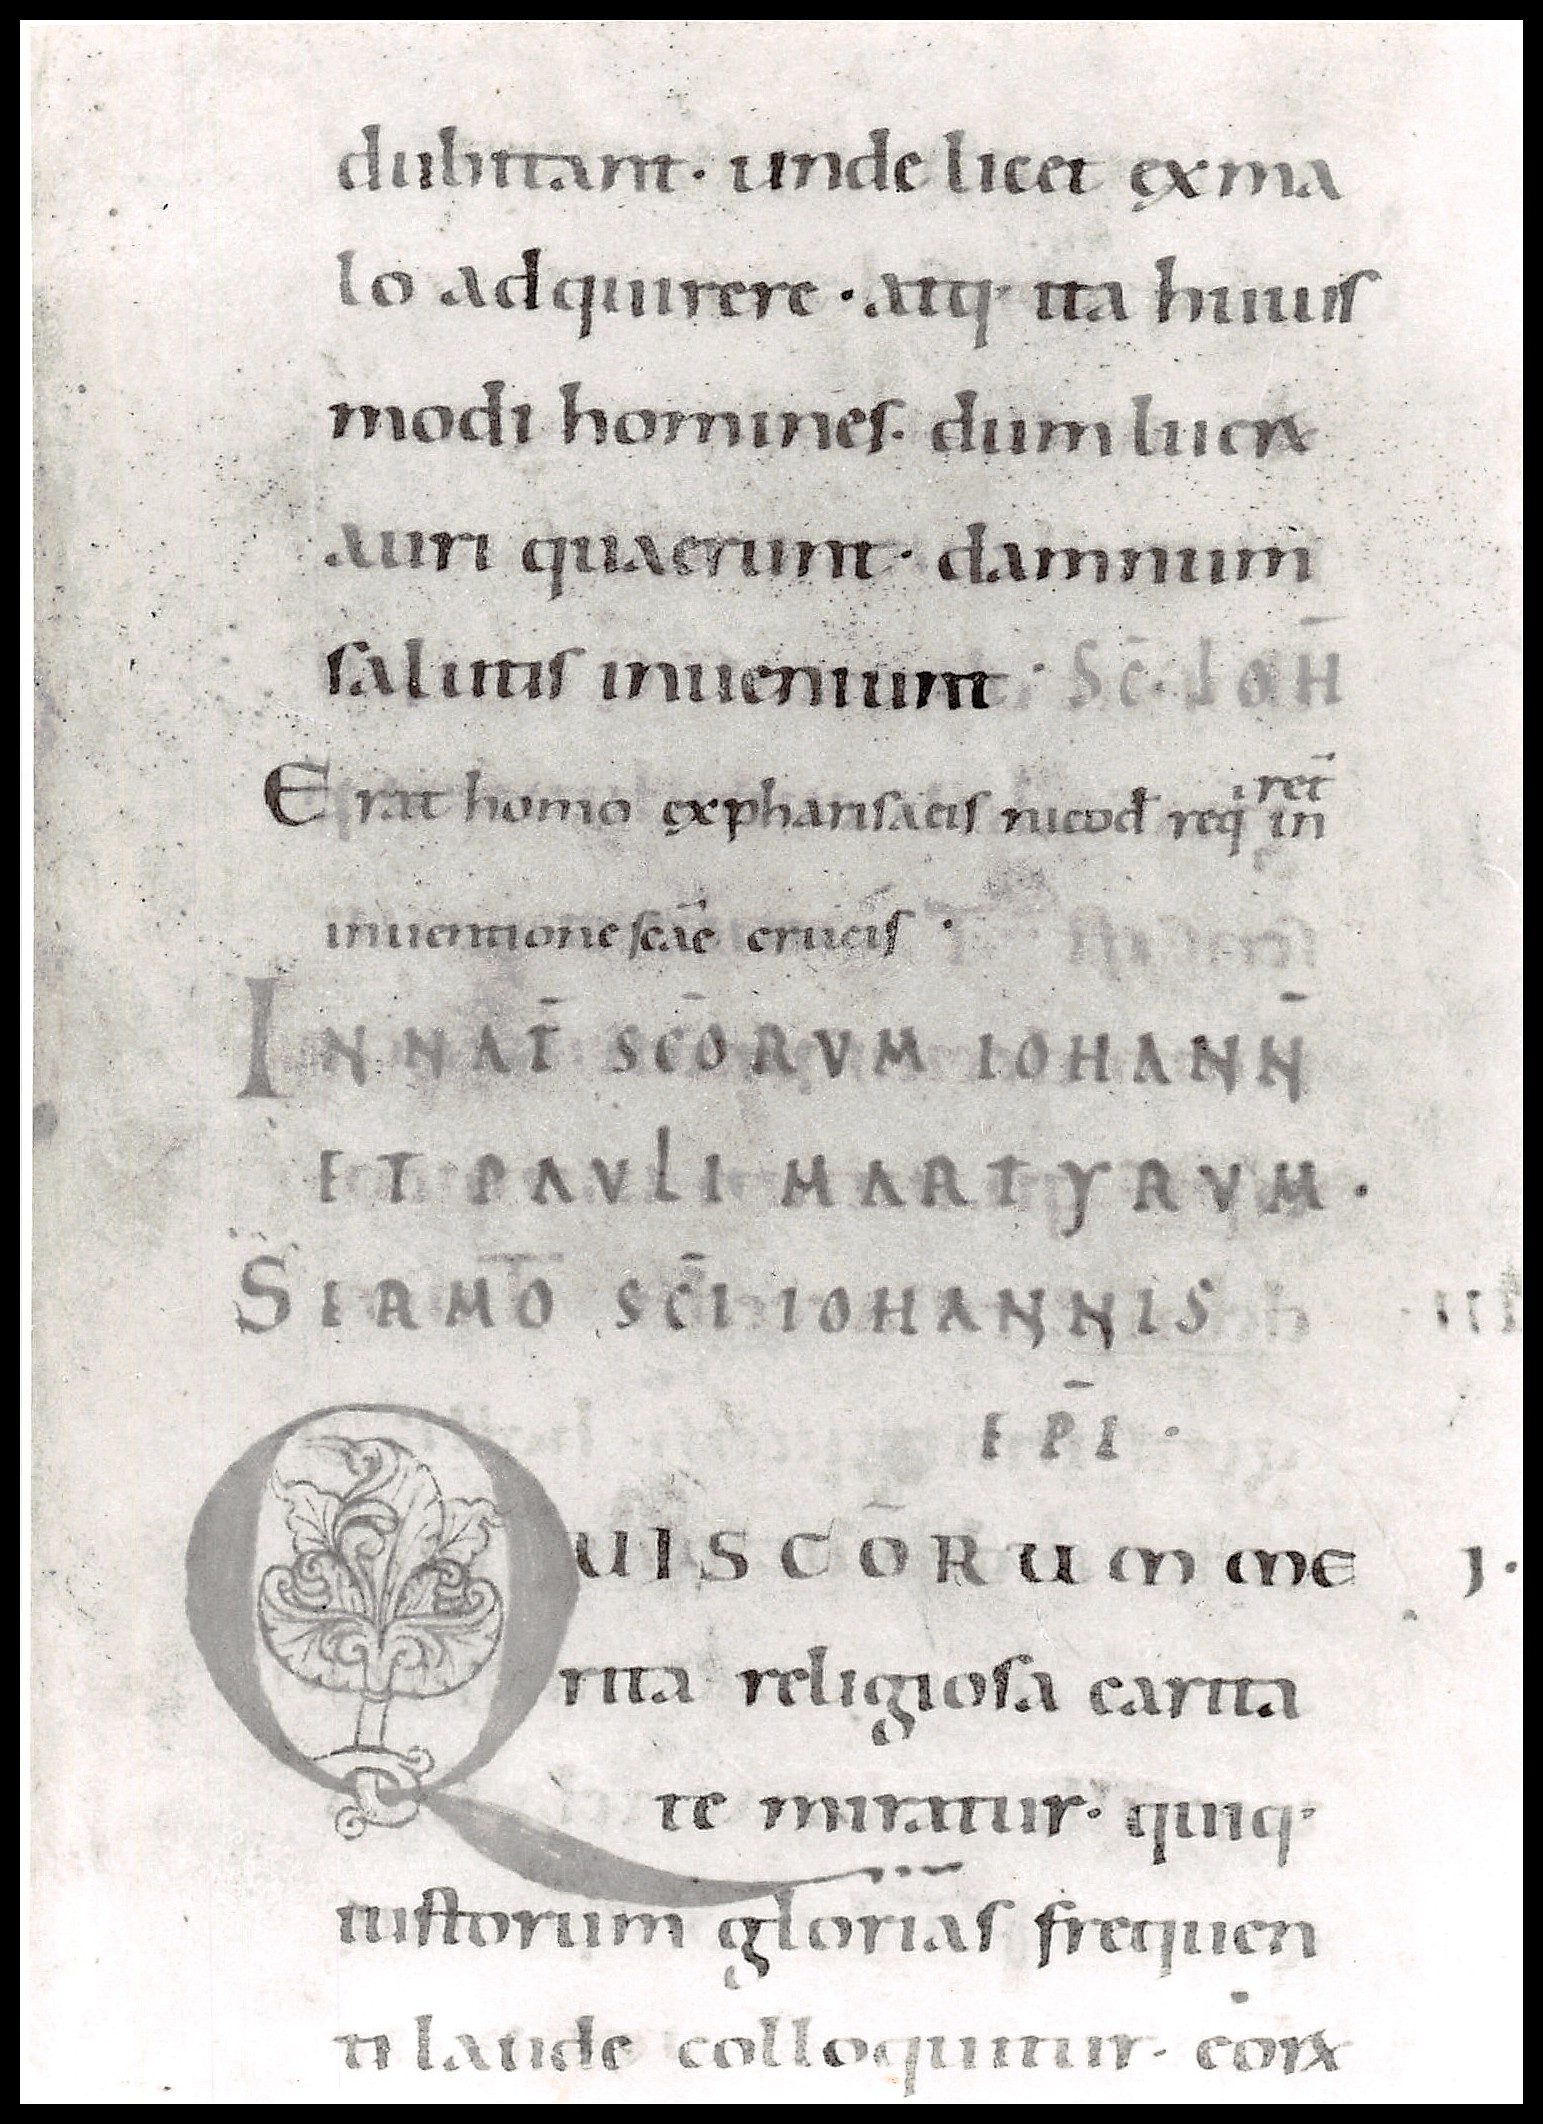 dubitant · unde licet ęx ma
lo adquirere · atq· ita huius
modi homines · dum lucrꝝ
auri quaerunt · damnum
salutis inueniunt · SC̄ · IOH̄
Erat homo ęx pharisaeis nicod̄ req̄ ret̄ in
inuentione sc̄ae crucis ·
IN NAT̄ SC̄ORVM IOHANN̄
ET PAVLI MARTYRVM ·
SERMO SC̄I IOHANNIS
EP̄I ·
QUI SCŌRUM ME J ·
rita religiosa carita
te miratur · quiq·
iustorum glorias frequen
ti laude colloquitur · eorꝝ